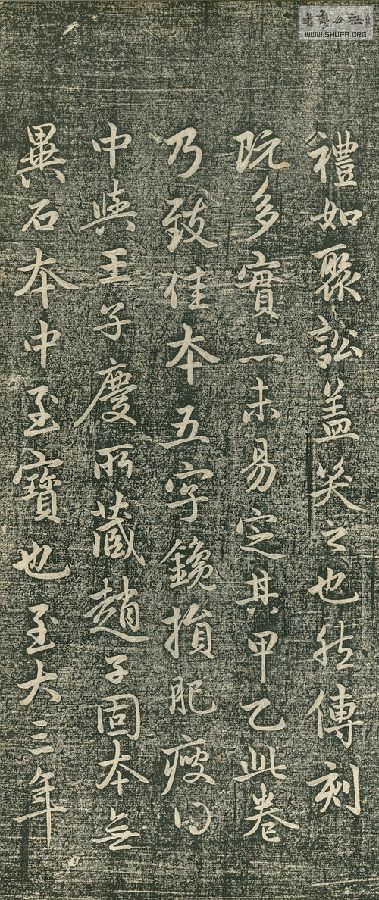 禮如聚訟盖笑之也然傳刻
既多實亦未易定其甲乙此卷
乃致佳本五字鑱損肥瘦得
中與王子慶所藏趙子固本無
異石本中至寶也至大三年
WWW.SHUFA.ORG